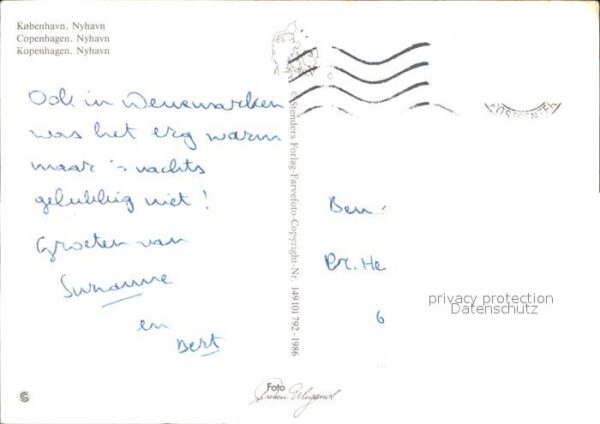 København. Nyhavn
Copenhagen. Nyhavn
Kopenhagen. Nyhavn
Ook in Denemarken
was het erg warm
maar 's nachts
gelukkig niet!
Groeten van
Suzanne
en
Bert
© Stenders Forlag-Farvefoto-Copyright-Nr. 149 101 792 - 1986
Ben
Dr. He
6
privacy protection
Datenschutz
Foto
S